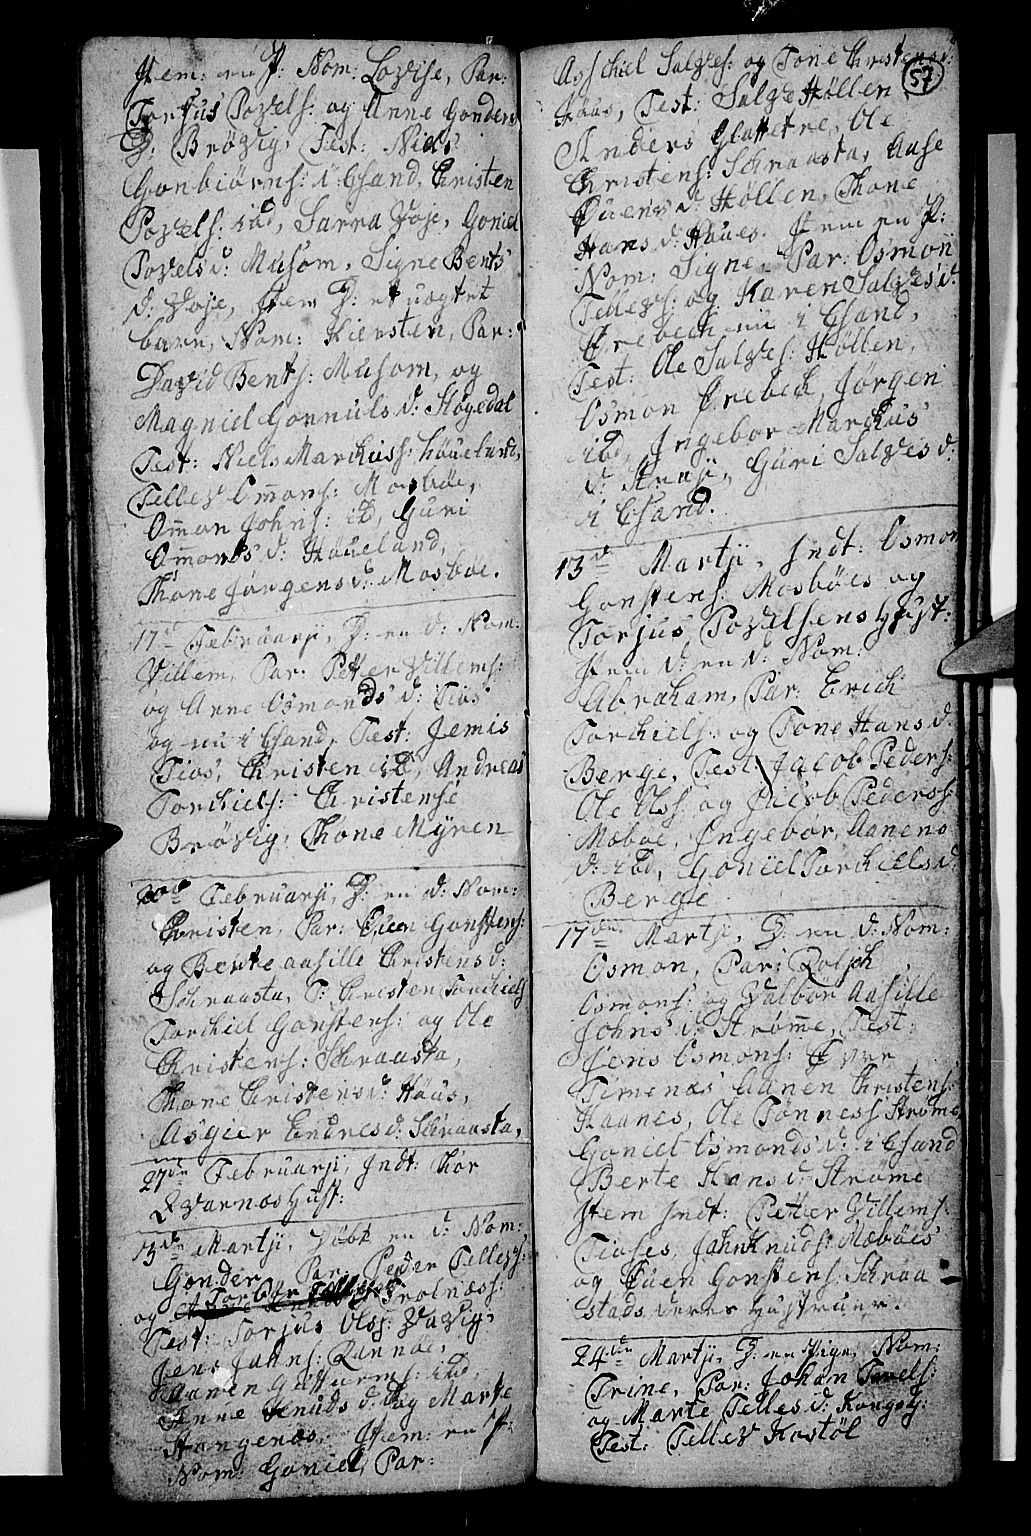 Item: en P: Nom: Lovise, Par:
Torjus Povels: og Anne Gonders
D: Brøvig, Test: Niels
Gonbiørns: i Chsand, Christen
Povels: ibd, Sarra Voje, Goniel
Povels d: Musom, Signe Bents
d: Voje, Item D: et uægtet
barn, Nom: Kiersten, Par:
David Bents: Musom, og
Magniel Gonnuls d: Høgedal
Test: Niels Marchuss: Høuelund,
Tellev Ommons: Mosbøe,
Ommon Johns: ibd, Guri
Ommonds d: Høueland,
Thone Jørgens d: Mosbøe.
17de Februarji, D: en d: Nom:
Villem, Par: Petter Villems:
og Anne Osmonds d: Tios
og nu i Chsand, Test: Jemis
Tios, Christen ibd, Andreas
Torchiels: Christense
Brøvig, Thone Myren
Februarji, D: en d: Nom:
Christen, Par: Even Gonstens:
og Bente aasille Christens d:
Schraasta, T: Christen Torchiels
Torchiel Gonstens: og Ole
Christens: Schraasta,
Thone Christens d: Haus,
Asgier Endres d: Schraasta,
27de Februarji, Indt: Thor
Qvarnes Hust:
13de Martji, Døbt en d: Nom:
Gonder, Par: Peder Tellevs:
og Tronæss:
Test: Torjus Ols: Vavig,
Jens Jahns: Rannøe,
Aanen Guttorms: ibd,
Anne Knuds d: og Marte
Stangenes, Item: en P:
Nom: Goniel, Par:
Aschiel Salves: og Tone Christens d: 57
Haus, Test: Salve Høllen,
Anders Glattetre, Ole
Christens: Schraasta, Aase
Evens d: Høllen, Thone
Hans d: Haues. Item en P:
Nom: Signe, Par: Osmon
Tellevs: og Karen Salves d:
Ørebeck nu i Chsand,
Test: Ole Salves: Høllen,
Osmon Ørebeck, Jørgen
ibd, Ingebor Marchus
d: Straje, Guri Salves d:
i Chsand.
13de Martji, Indt: Osmon
Gonstens: Mosbøes og
Torjus Povelsens Hust:
Item d: en d: Nom:
Abraham, Par: Erich
Torchiels: og Tone Hans d:
Berge, Test Jacob Peders:
Ole Olss: og Jacob Pederss:
Moboe, Ingebor, Aanens
d: ibd, Goniel Torchiels d:
Berge.
17de Martji, D: en d: Nom:
Osmon, Par: Roljeh
Osmons: og Valbor Aasille
Johns d: Strømme, Test:
Jens Osmons:
Timenæs Aanen Christens:
Haanes, Ole Tønness: Strøme,
Goniel Osmonds d: i Chsand
Berte Hans d: Strøme
Item Indt: Petter Villems:
Tioses, Jahn Knuds: Mæbøes
og Even Gonstens: Schraa
stads deres Hustruer.
24de Martji, D: en Pige, Nom:
Trine, Par: Johan
og Marte Telles d: Kongsg:
Test: Tellev Kostøl